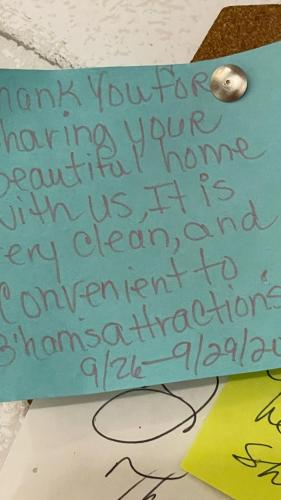 hank You for
haring your
beautiful home
with us, It is
ery clean, and
Convenient to
B'hams attractions
9/26-9/29/20
Th
he
Sh